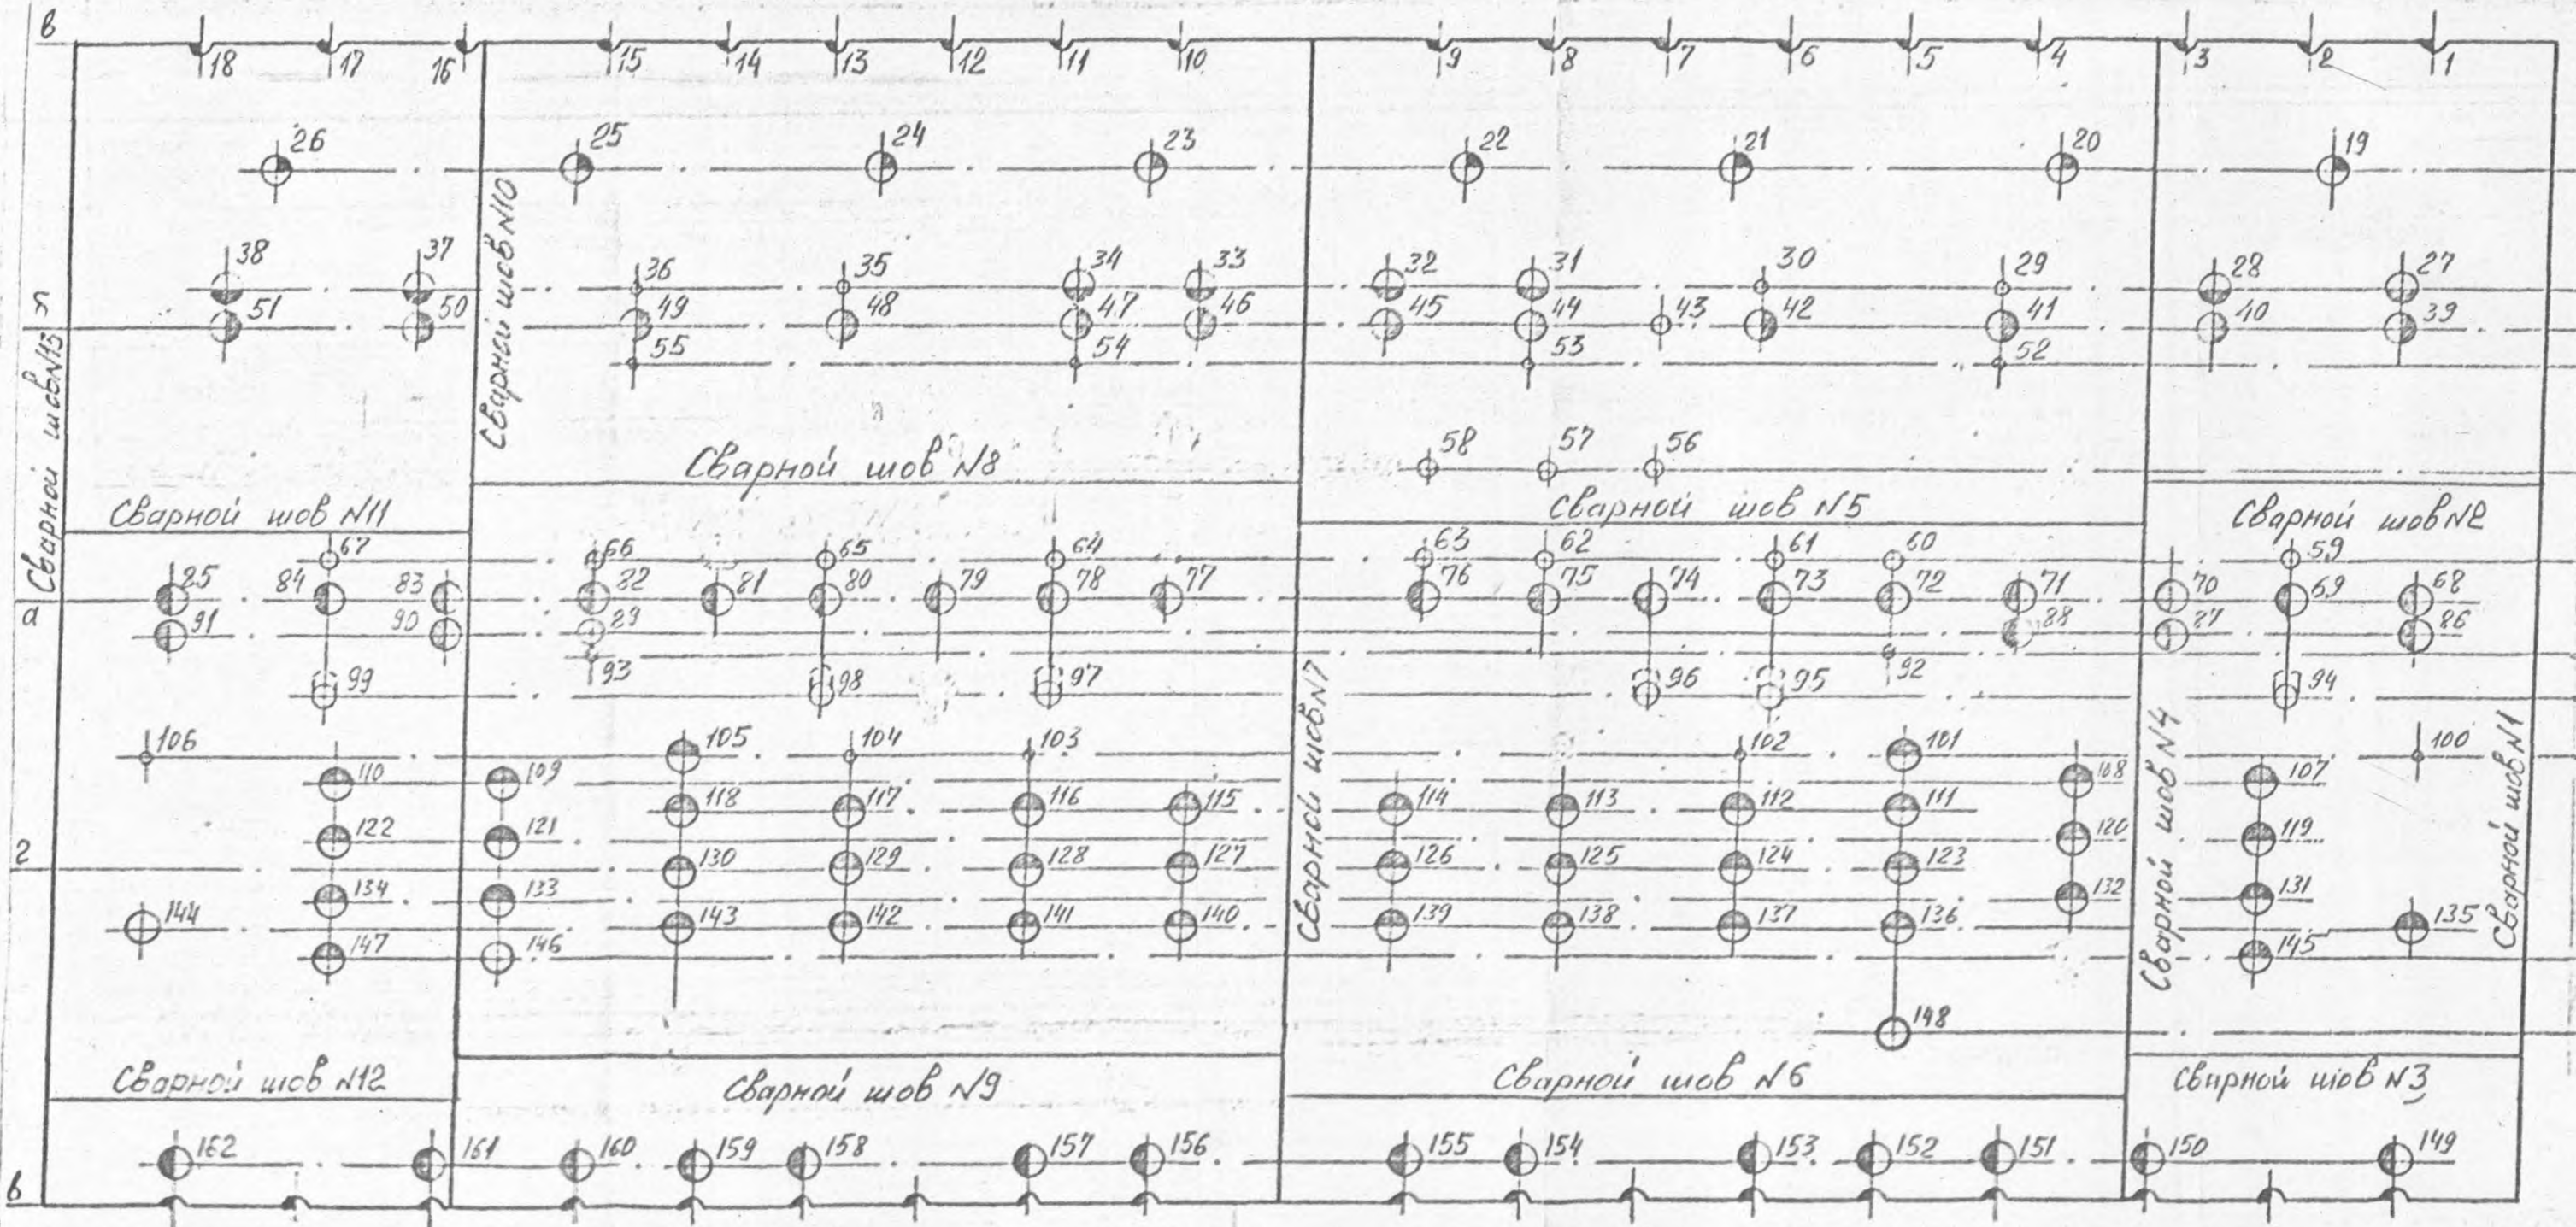 в
18 17 16 15 14 13 12 11 10 9 8 7 6 5 4 3 2 1
26 25 24 23 22 21 20 19
Сварной шов N10
38 37 36 35 34 33 32 31 30 29 28 27
л
51 50 49 48 47 46 45 44 43 42 41 40 39
55 54 53 52
Сварной шов N13
58 57 56
Сварной шов N8
Сварной шов N11
Сварной шов N5
Сварной шов N2
67 66 65 64 63 62 61 60 59
85 84 83 82 81 80 79 78 77 76 75 74 73 72 71 70 69 68
а
91 90 89 88 87 86
93 92
99 98 97 96 95 94
Сварной шов N7
Сварной шов N4
Сварной шов N1
106 105 104 103 102 101 100
110 109 108 107
118 117 116 115 114 113 112 111
122 121 120 119
2
130 129 128 127 126 125 124 123
134 133 132 131
144 143 142 141 140 139 138 137 136 135
147 146 145
148
Сварной шов N12
Сварной шов N9
Сварной шов N6
Сварной шов N3
162 161 160 159 158 157 156 155 154 153 152 151 150 149
в